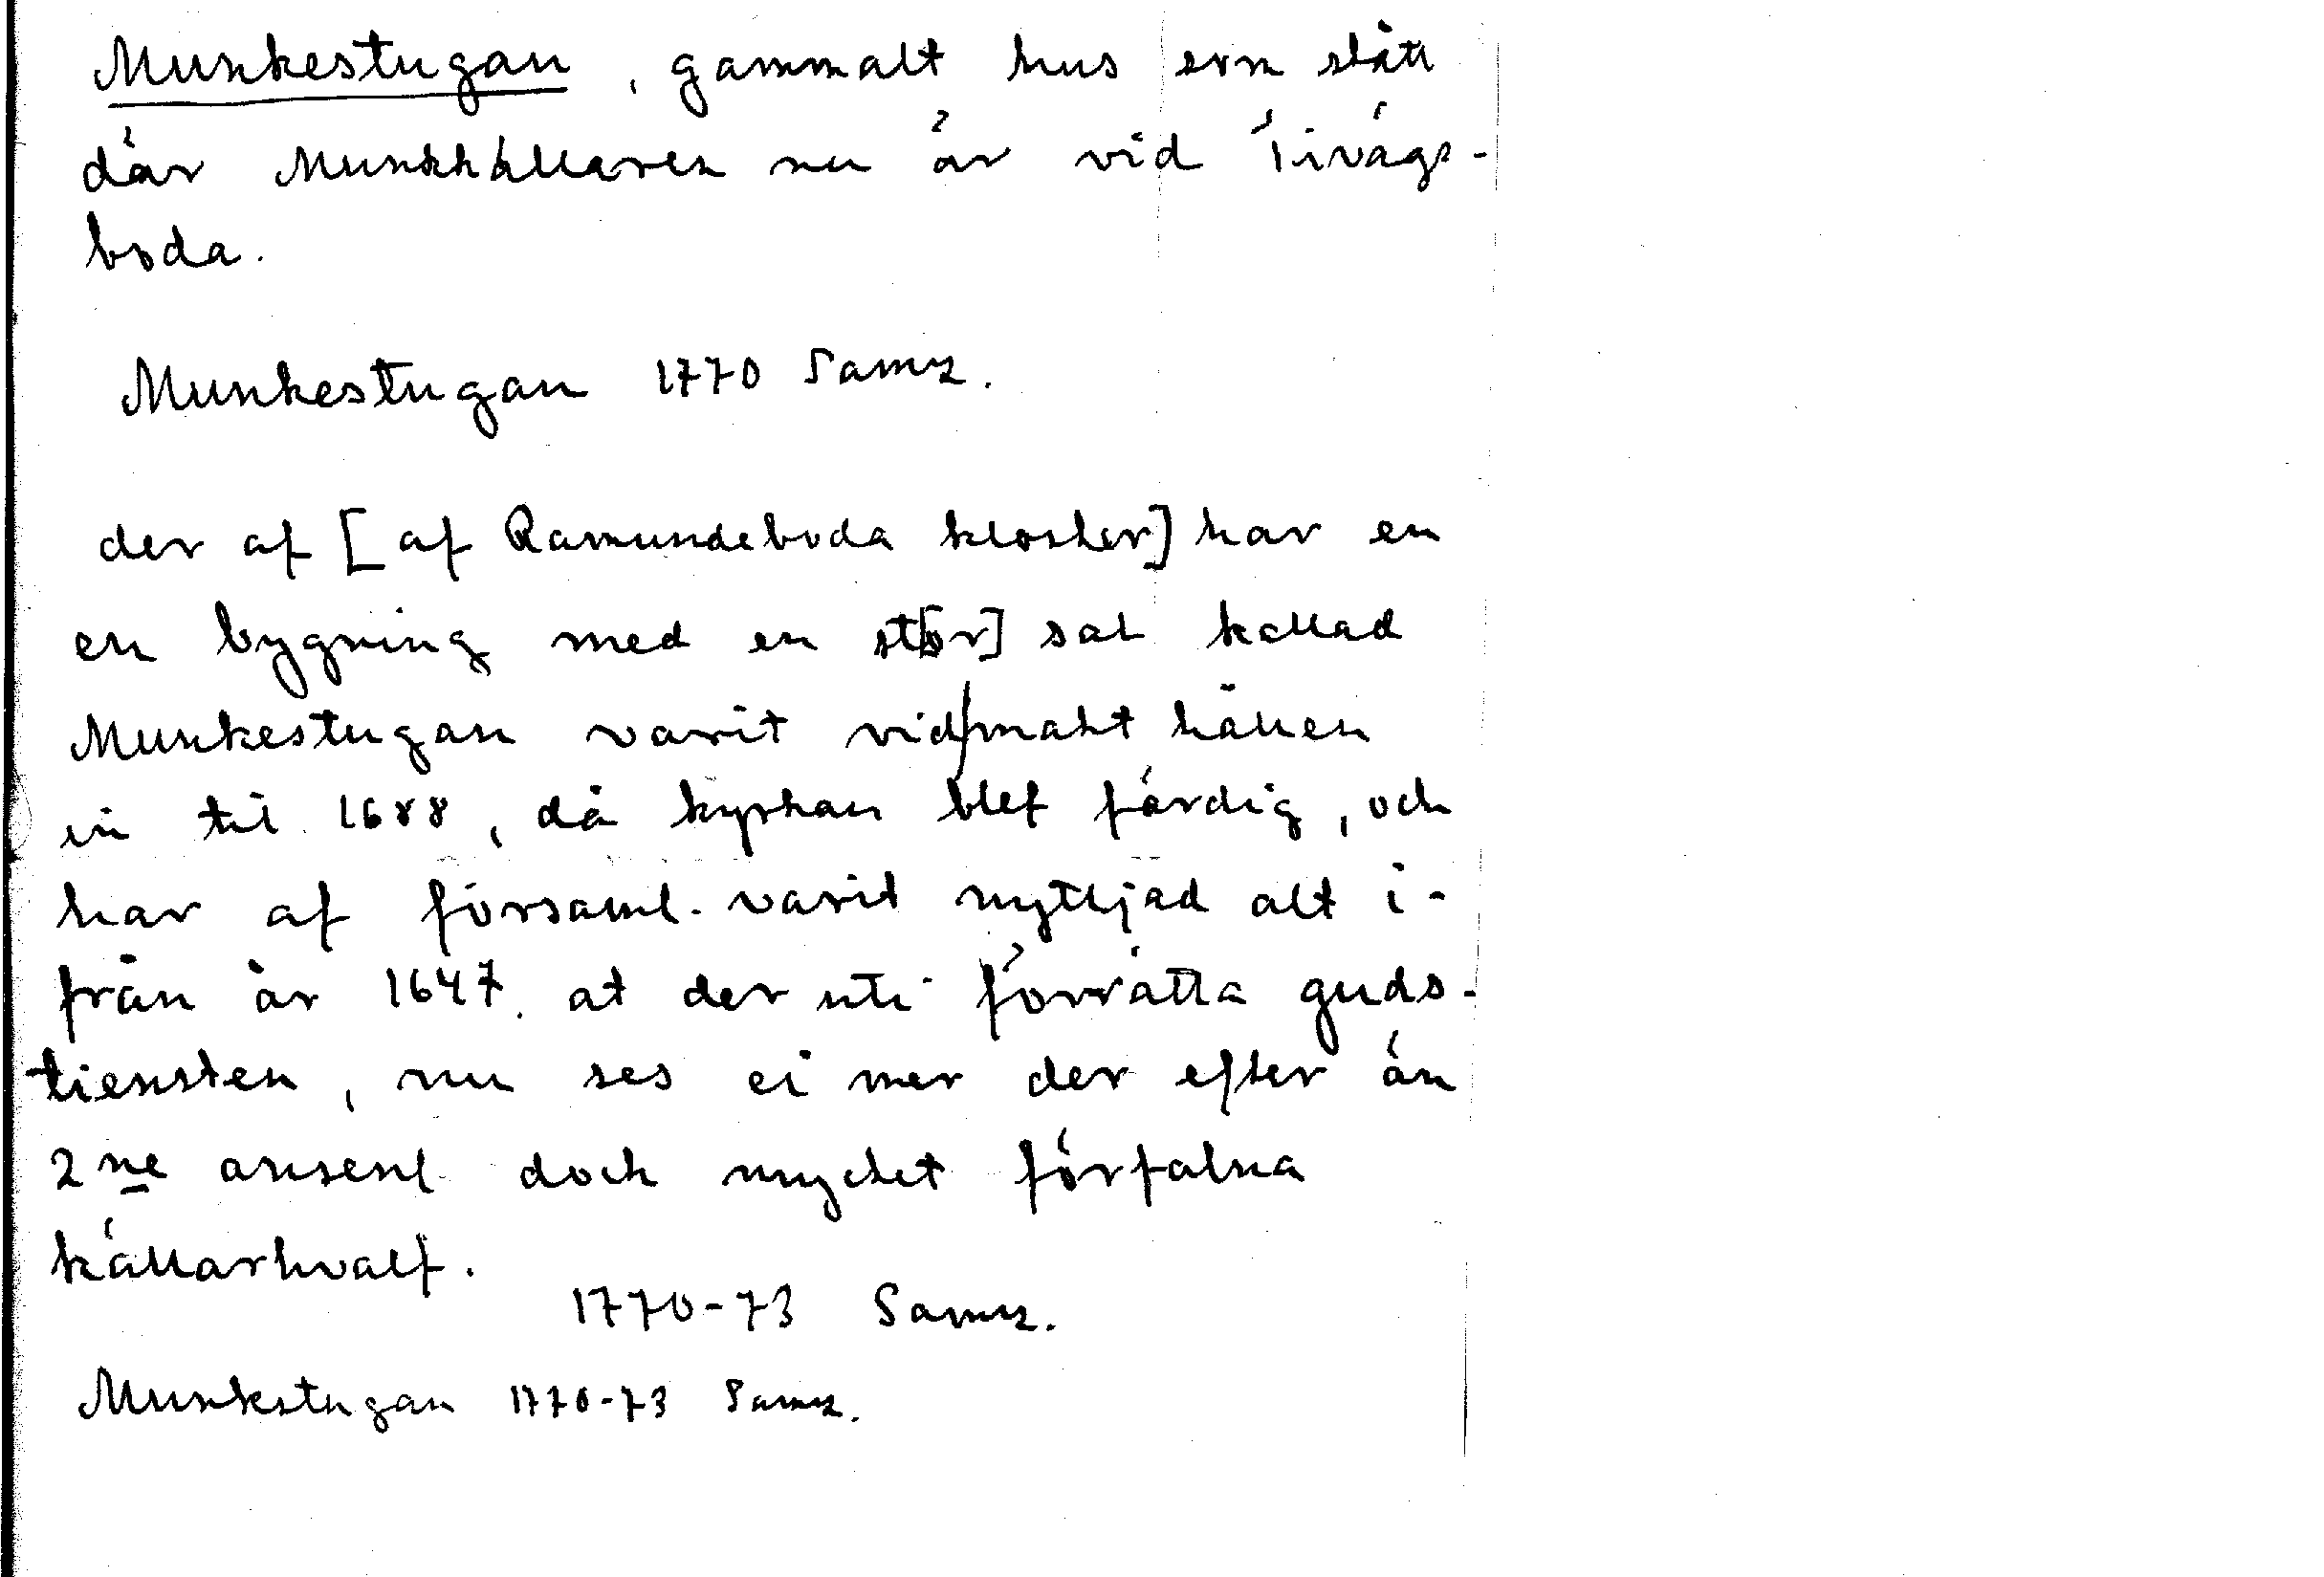 Munkestugan, gammalt hus som stått
där Munkkällaren nu är vid Tivägs-
boda.
Munkestugan 1770 Saml.
der af [af Ramundeboda kloster] har en
en bygning med en st[or] sal kallad
Munkestugan varit vidmakt hållen
in til 1688, då kyrkan blef färdig, och
har af församl. varit nyttjad alt i-
från år 1647. at der uti förrätta guds-
tiensten, nu ses ei mer der efter än
2ne ansenl doch mycket förfalna
källarhvalf.
1770-73 Saml.
Munkstugan 1770-73 Saml.